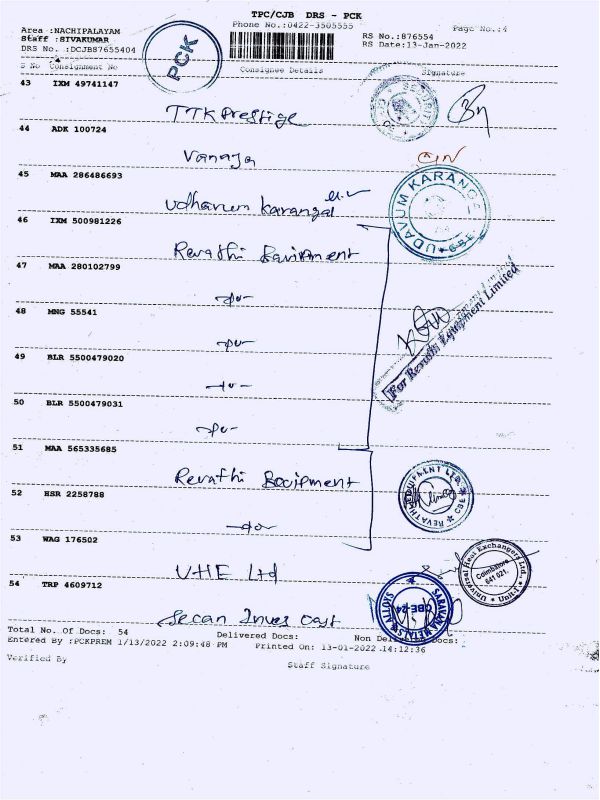 TPC/CJB DRS - PCK
Phone No.:0422-3505555
Page No.:4
Area :NACHIPALAYAM
Staff :SIVAKUMAR
DRS No. :DCJB87655404
RS No.:876554
RS Date:13-Jan-2022
PCK
S No Consignment No Consignee Details Signature
43 IXM 49741147
TTK Prestige
SECURITY
44 ADK 100724
Vanaja
45 MAA 286486693
Udhavum Karangal
UDAVUM KARANG
CBE
46 IXM 500981226
Revathi Equipment
47 MAA 280102799
-do-
48 MNG 55541
-do-
For Revathi Equipment Limited
49 BLR 5500479020
-do-
50 BLR 5500479031
-do-
51 MAA 565335685
Revathi Equipment
REVATHI EQUIPMENT LTD. CBE
52 HSR 2258788
-do-
53 WAG 176502
UHE Ltd
Universal Heat Exchangers Ltd., Unit-I
Coimbatore
641 021.
54 TRP 4609712
Secan Inves Cast
SARAVANA METALS & ALLOYS
CBE-24
Total No. Of Docs: 54 Delivered Docs: Non Delivered Docs:
Entered By :PCKPREM 1/13/2022 2:09:48 PM Printed On: 13-01-2022 14:12:36
Verified By Staff Signature